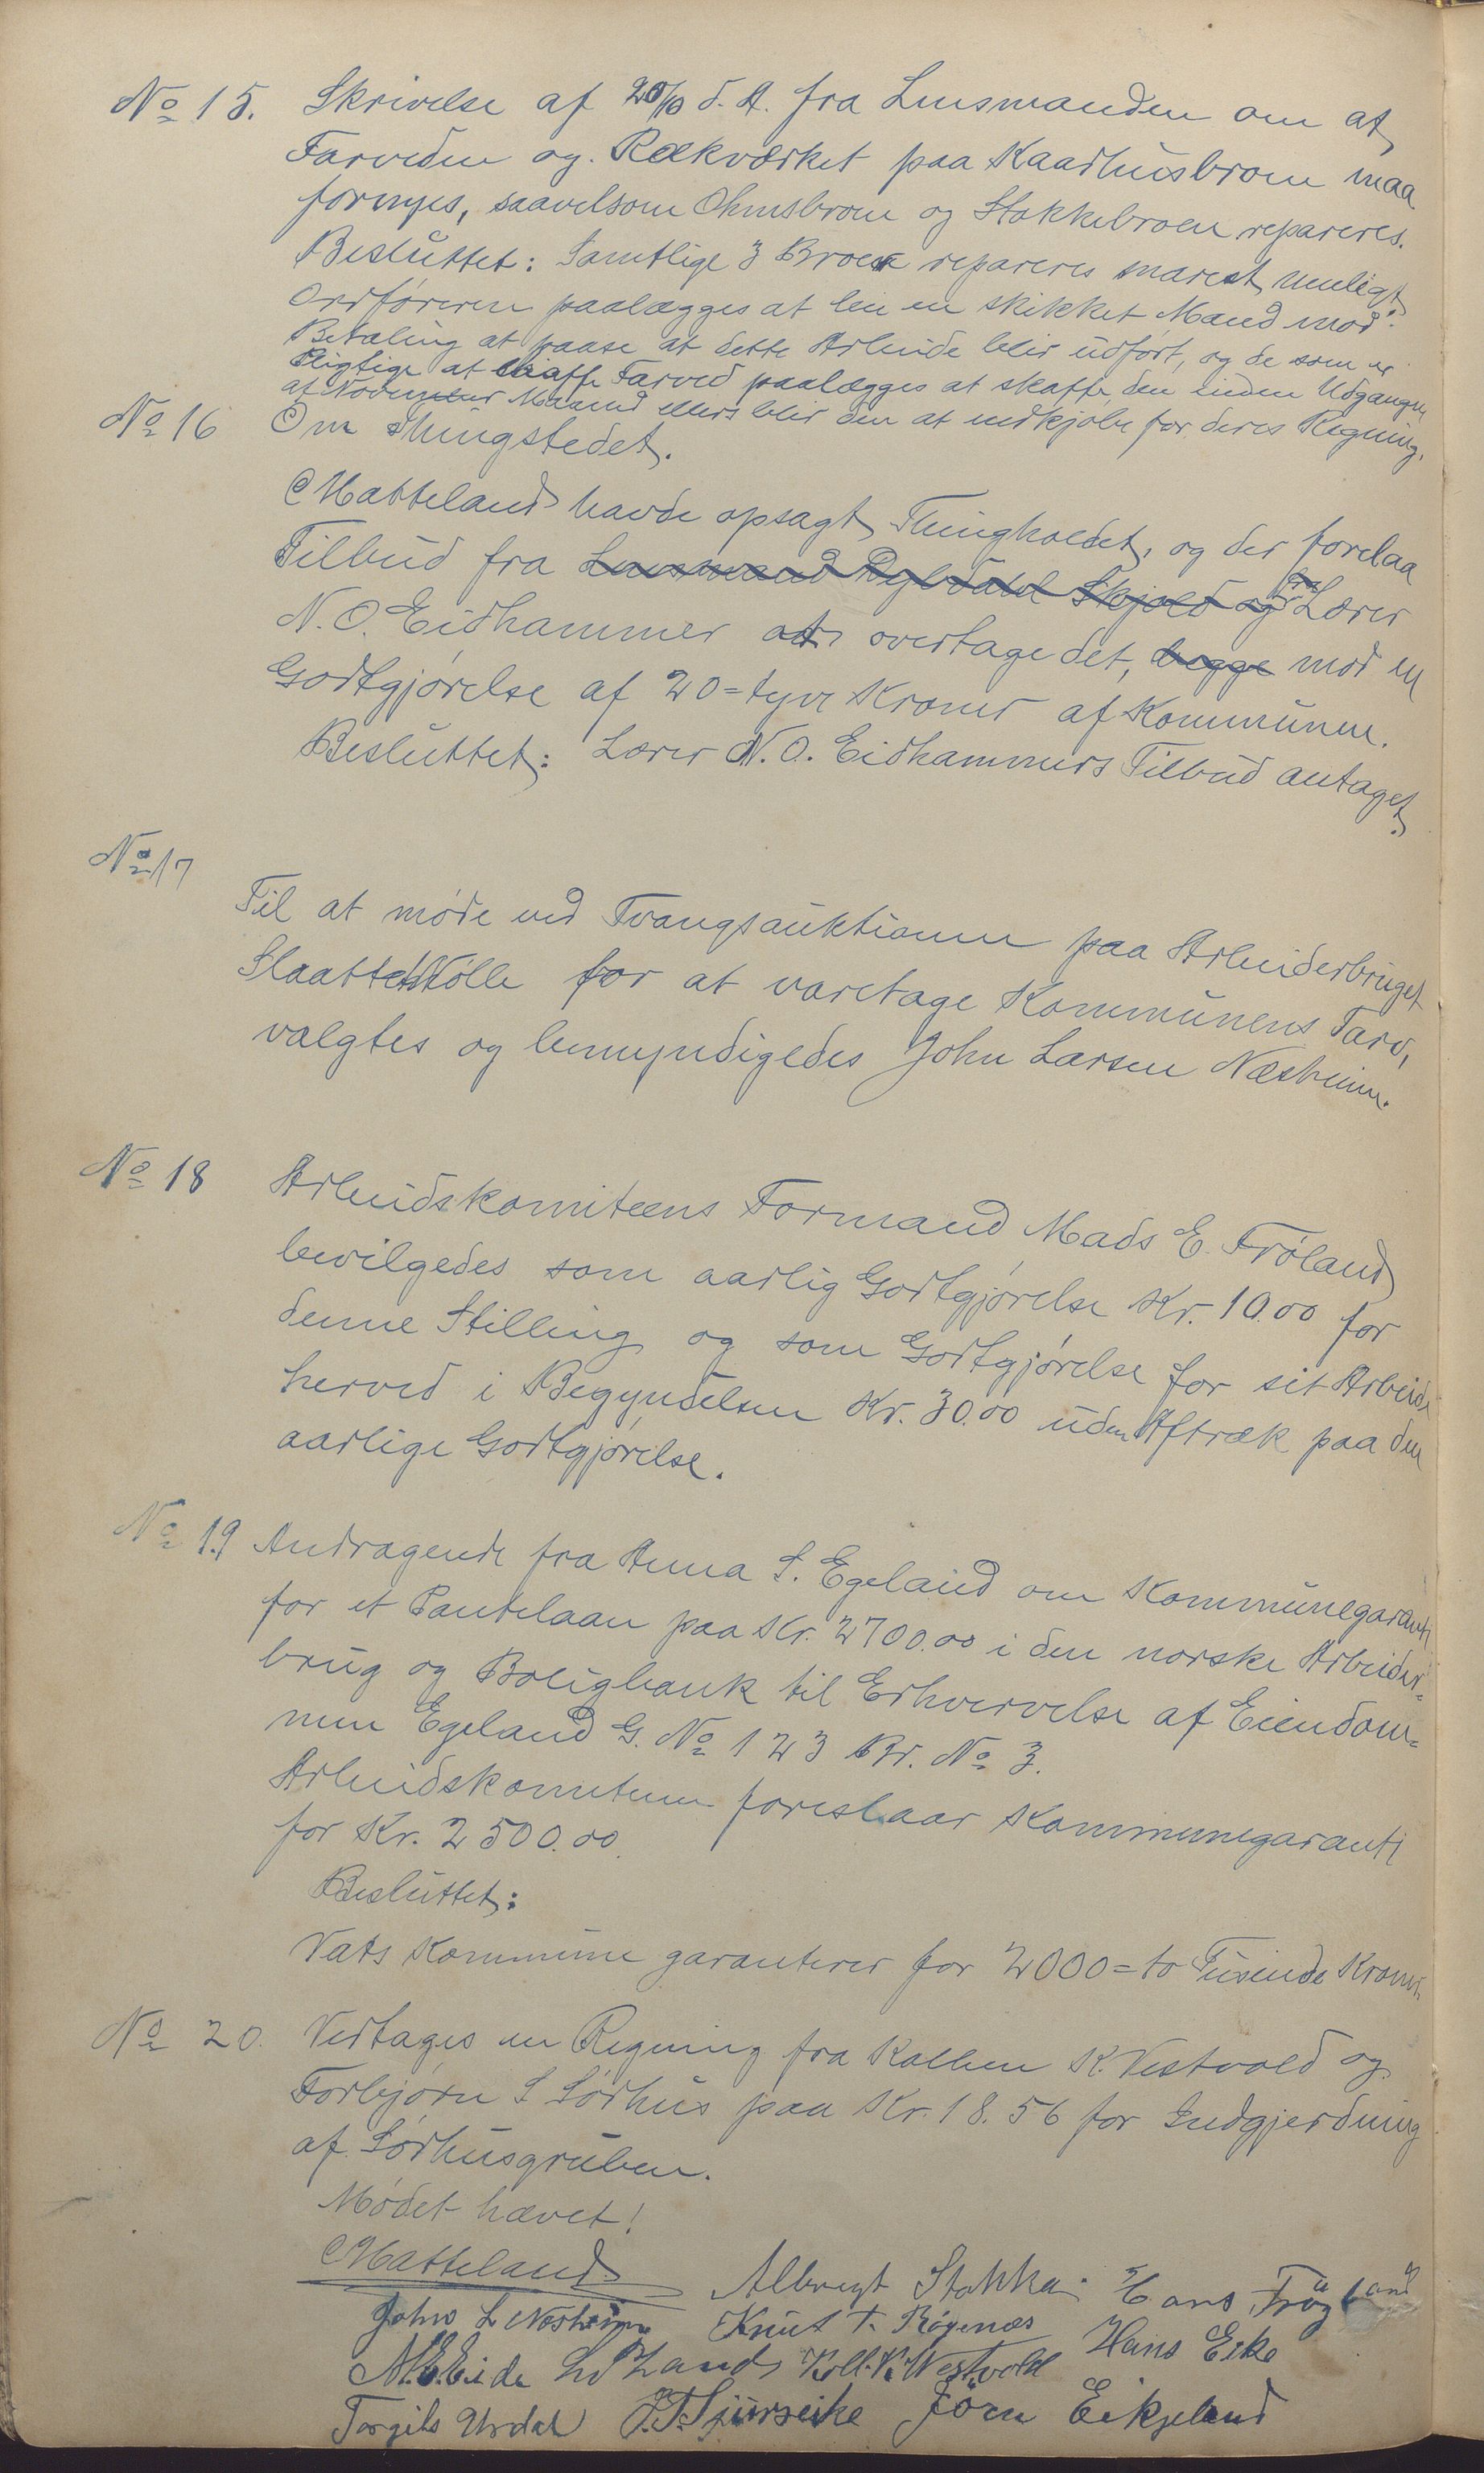 No 15. Skrivelse af 20/10 d. A. fra Lensmanden om at
Farveden og Rækværket paa Kaarhusbroen maa
fornyes, saavelsom Ohmsbroen og Stakkebroen repareres.
Besluttet: Samtlige 3 Broer repareres snarest muligt.
Ordføreren paalægges at leie en skikket Mand mod
Betaling at paase at dette Arbeide blir udført, og de som er
Pligtige at skaffe Farved paalægges at skaffe den inden Udgangen
af November Maaned ellers blir den at indkjøbe for deres Regning.
No 16 Om Thingstedet.
Matteland havde opsagt Thingholdet, og der forelaa
Tilbud fra Lensmand Skjold og fra Lærer
N. O. Eidhammer at overtage det, begge mod en
Godtgjørelse af 20 = tyve Kroner af Kommunen.
Besluttet: Lærer N. O. Eidhammers Tilbud antaget.
No 17
Til at møde ved Tvangsauktionen paa Arbeiderbruget
Slaattehølle for at varetage Kommunens Tarv,
valgtes og bemyndigedes John Larsen Næsheim.
No 18 Arbeidskomiteens Formand Mads E. Frøland
bevilgedes som aarlig Godtgjørelse Kr. 10.00 for
denne Stilling og som Godtgjørelse for sit Arbeide
herved i Begyndelsen Kr. 30.00 uden Aftræk paa den
aarlige Godtgjørelse.
No 19 Andragende fra Anna S. Egeland om Kommunegaranti
for et Pantelaan paa Kr. 2700.00 i den norske Arbeider-
brug og Boligbank til Erhvervelse af Eiendom-
men Egeland G. No 123 Br. No 3.
Arbeidskomiteen foreslaar Kommunegaranti
for Kr. 2500.00.
Besluttet:
Vats Kommune garanterer for 2000 = to Tusinde Kroner.
No 20. Vedtages en Regning fra Kolben K. Vestvold og
Torbjørn S Sørhus paa Kr. 18.56 for Indgjerdning
af Sørhusgruben.
Mødet hævet!
Matteland Albregt Stakka Hans Frøyland
John L Næsheim Knut T. Røgenæs Hans Eike
M. E. Eide Land Kolb. K. Westvold
Torgils Urdal J. T. Sjurseike Jørn Eikjeland